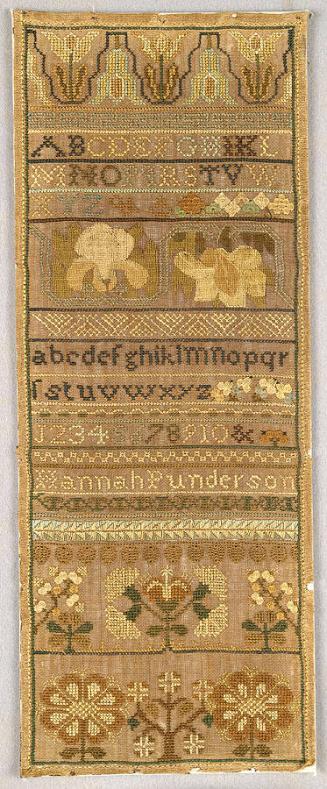 ABCDEFGHIKL
MNOPRSTVW
XYZ
abcdefghiklmnopqr
ſstuvwxyz
12345678910&
Hannah Punderson